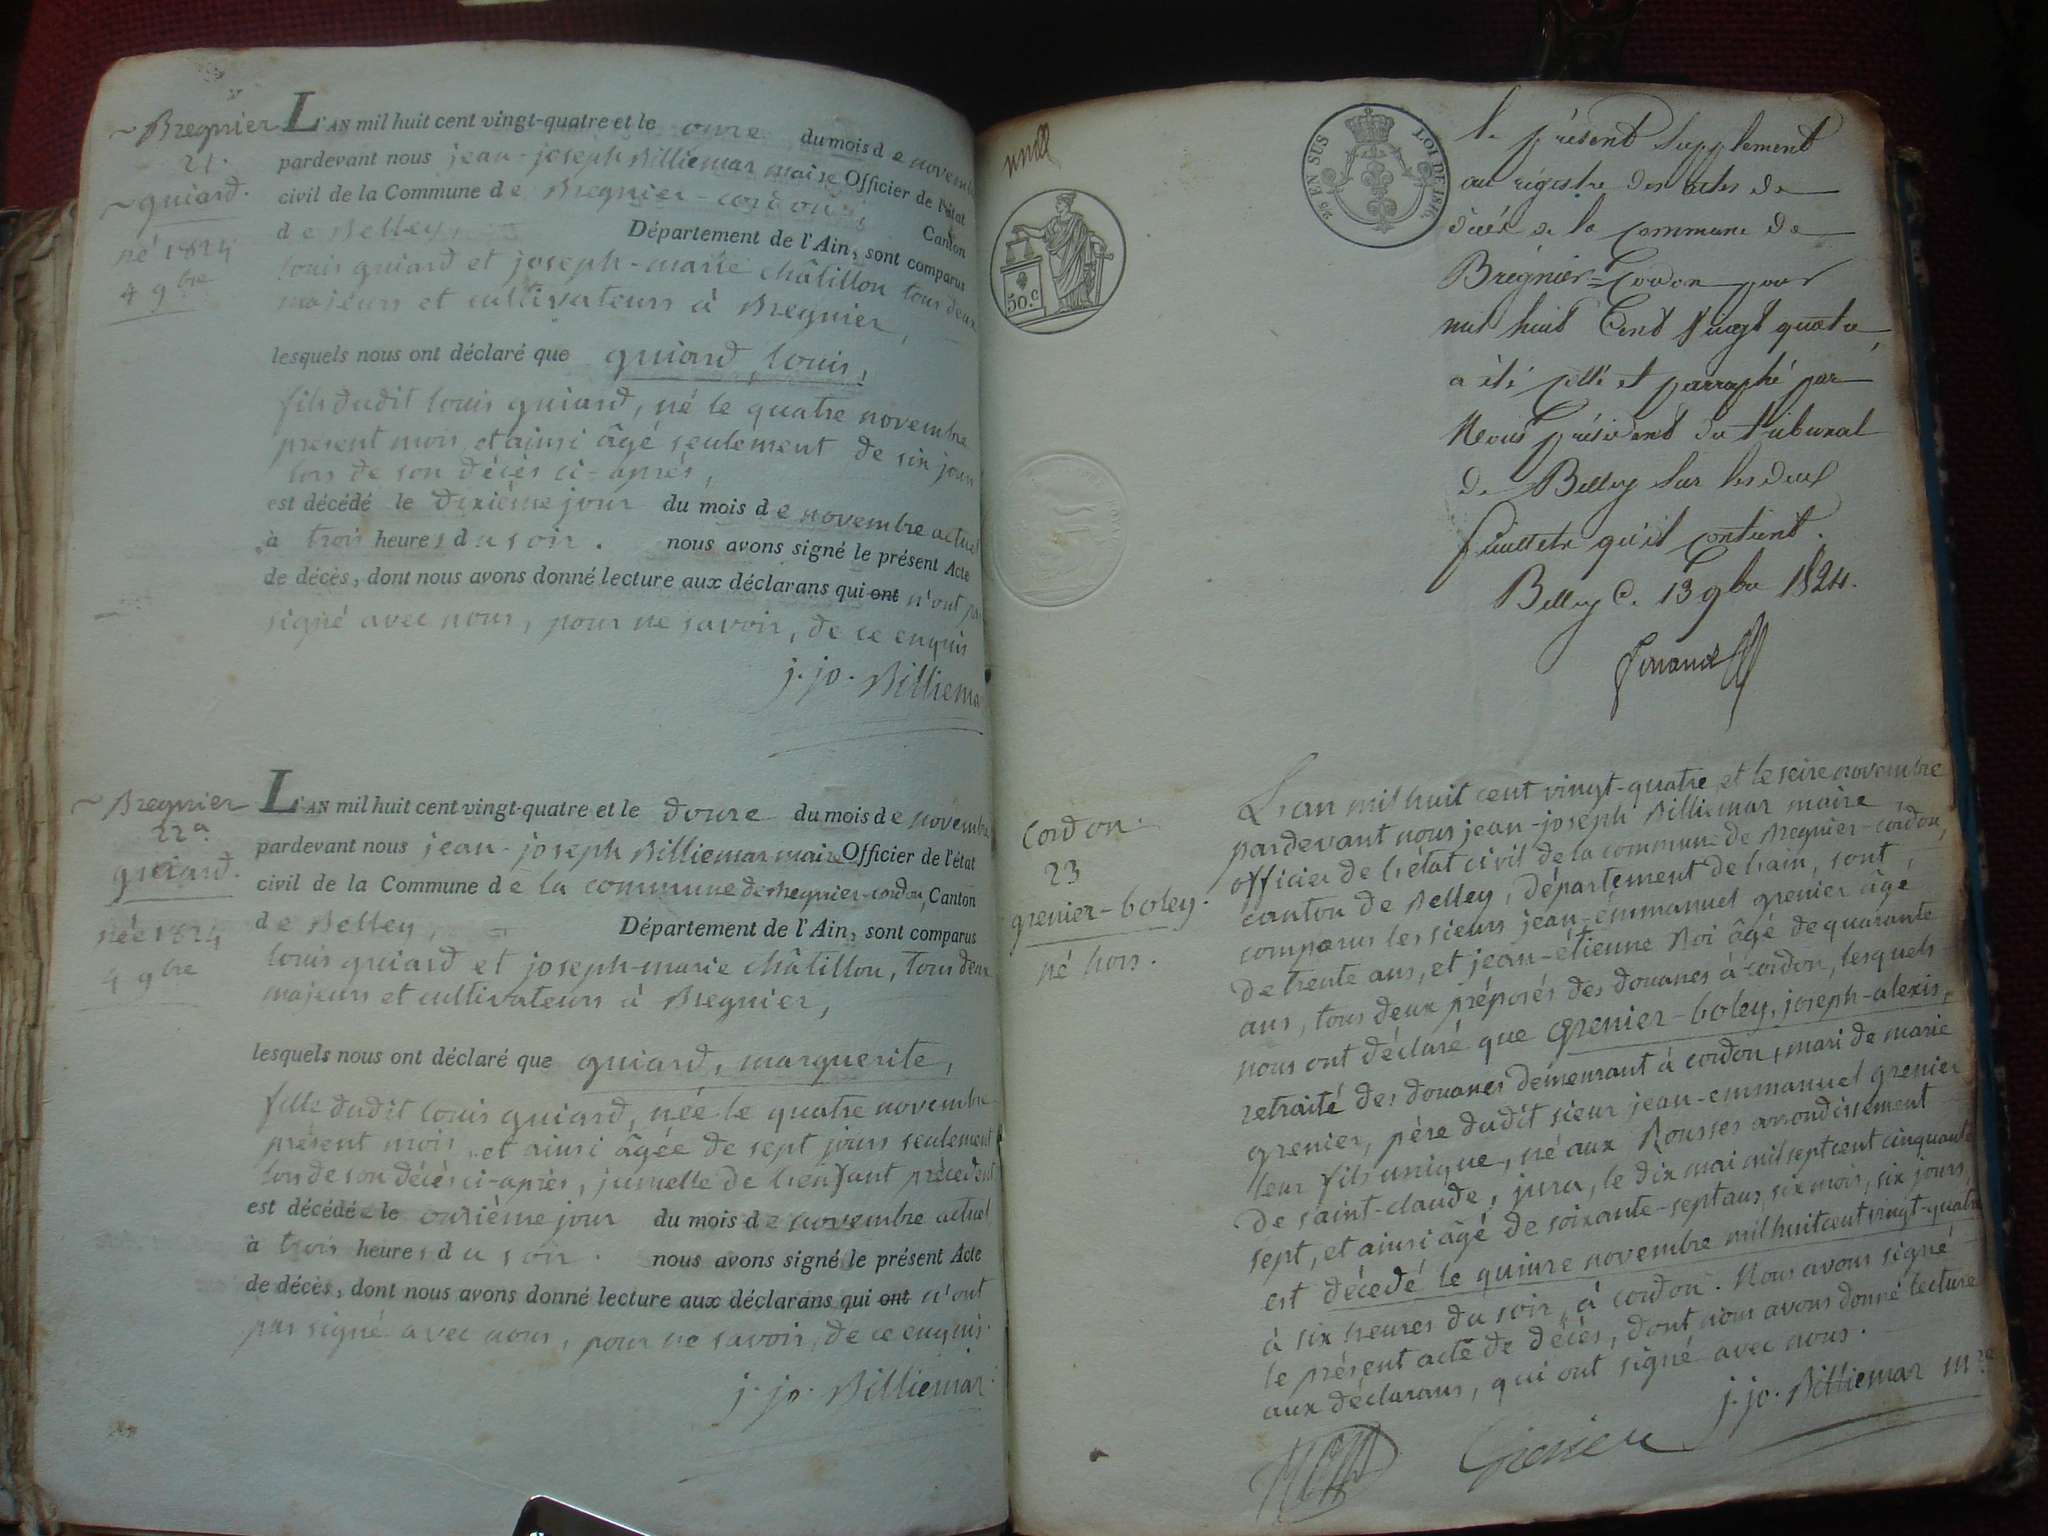 ~ Bregnier
21.
~ guiard.
né 1824
4 9bre
L'AN mil huit cent vingt-quatre et le onze du mois de novembre
pardevant nous jean-joseph Billiemaz maire Officier de l'état
civil de la Commune de Bregnier-cordon, Canton
de Belley, Département de l'Ain, sont comparus
louis guiard et joseph-marie châtillon tous deux
majeurs et cultivateurs à Bregnier,
lesquels nous ont déclaré que guiard, louis,
fils dudit louis guiard, né le quatre novembre
présent mois, et ainsi âgé seulement de six jours
lors de son décès ci-après,
est décédé le dixième jour du mois de novembre actuel
à trois heures du soir. nous avons signé le présent Acte
de décès, dont nous avons donné lecture aux déclarans qui ont n'ont pas
signé avec nous, pour ne savoir, de ce enquis
j. jo. Billiemaz
~ Bregnier
22a
guiard.
née 1824
4 9bre
L'AN mil huit cent vingt-quatre et le douze du mois de novembre
pardevant nous jean-joseph Billiemaz maire Officier de l'état
civil de la Commune de la commune de Bregnier-cordon, Canton
de Belley, Département de l'Ain, sont comparus
louis guiard et joseph-marie châtillon, tous deux
majeurs et cultivateurs à Bregnier,
lesquels nous ont déclaré que guiard, marguerite,
fille dudit louis guiard, née le quatre novembre
présent mois, et ainsi âgée de sept jours seulement
lors de son décès ci-après, jumelle de l'enfant précédent
est décédée le onzième jour du mois de novembre actuel
à trois heures du soir. nous avons signé le présent Acte
de décès, dont nous avons donné lecture aux déclarans qui ont n'ont
pas signé avec nous, pour ne savoir, de ce enquis.
j. jo. Billiemaz.
50.C
25 EN SUS
LOI DE 1816.
le présent Supplement
au régistre des actes de
décès de la commune de
Brégnier=Cordon pour
mil huit Cent vingt quatre,
a été cotté et parraphé par
Nous Président du tribunal
de Belley sur les deux
feuillets qu'il contient.
Belley C. 13 9bre 1824.
Cordon.
23
grenier-boley.
né hors.
L'an mil huit cent vingt-quatre, et le seize novembre
pardevant nous jean-joseph Billiemaz maire,
officier de l'état civil de la commune de Bregnier-cordon,
canton de Belley, département de l'ain, sont
comparus les sieurs jean-emmanuel grenier âgé
de trente ans, et jean-étienne Roi âgé de quarante
ans, tous deux préposés des douanes à cordon, lesquels
nous ont déclaré que Grenier-boley, joseph-alexis,
retraité des douanes demeurant à cordon, mari de marie
grenier, père dudit sieur jean-emmanuel grenier
leur fils unique, né aux Rousses arrondissement
de saint-claude, jura, le dix mai mil sept cent cinquante
sept, et ainsi âgé de soixante-sept ans, six mois, six jours,
est décedé le quinze novembre mil huit cent vingt-quatre
à six heures du soir, à cordon. Nous avons signé
le présent acte de décès, dont nous avons donné lecture
aux déclarans, qui ont signé avec nous.
j. jo. Billiemaz mre
Grenier